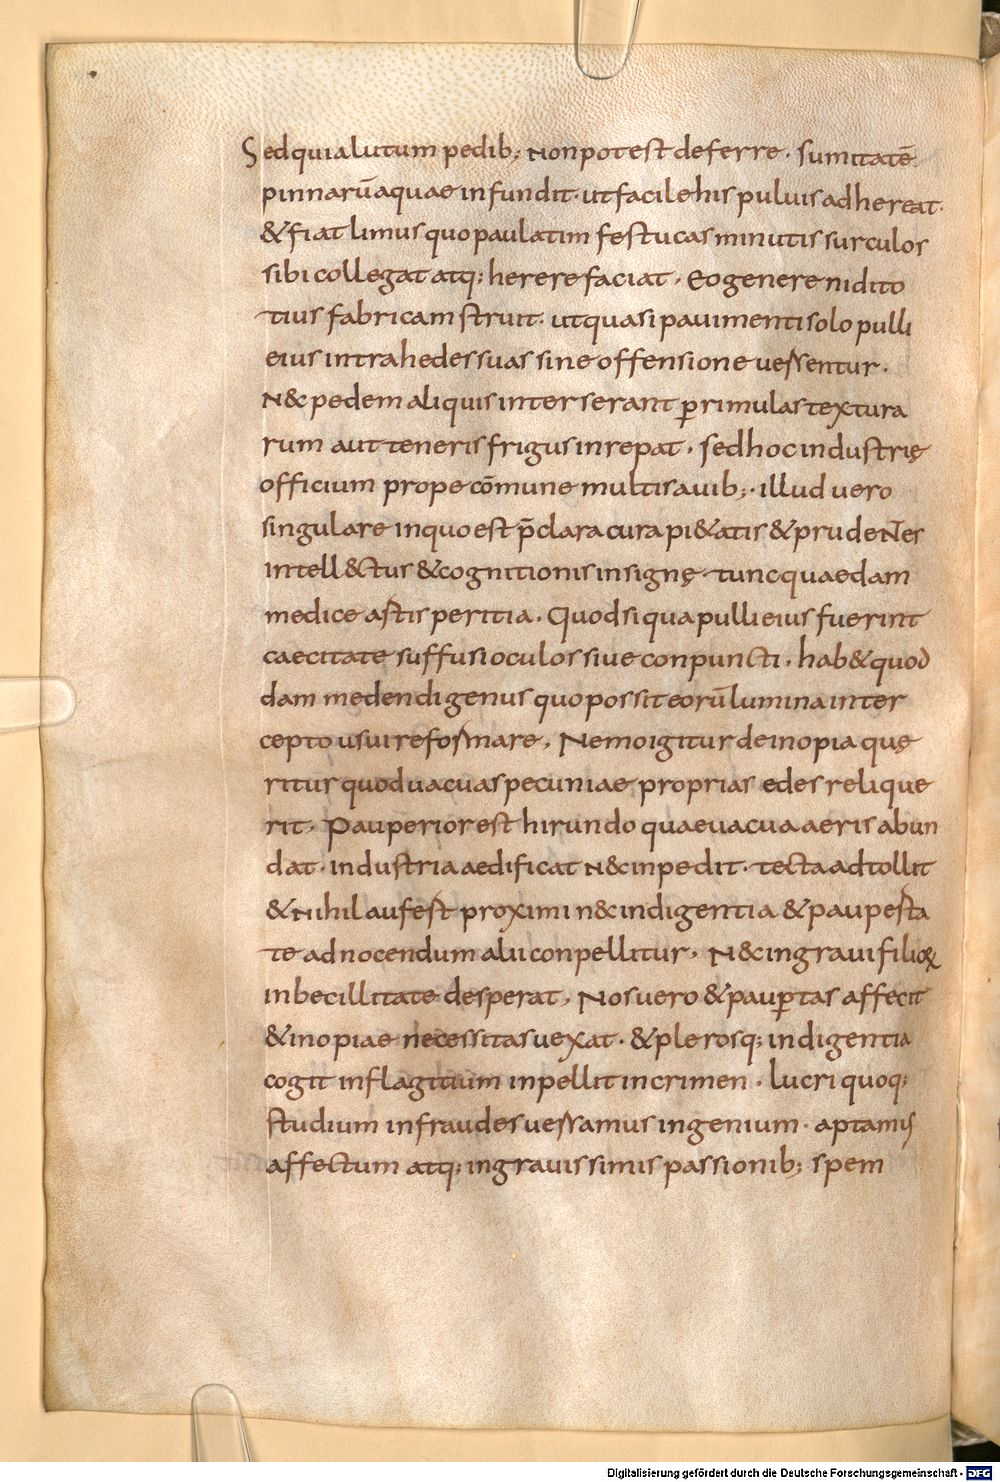 Sed quia lutum pedib; non potest deferre · sumitatē
pinnarū aquae infundit · ut facile his puluis adhereat ·
& fiat limus quo paulatim festucas minutis surculos
sibi collegat atq; herere faciat · Eo genere nidi to
tius fabricam struit · ut quasi pauimenti solo pulli
eius intra hedes suas sine offensione uessentur ·
N& pedem aliquis interserant ꝑ rimulas textura
rum aut teneris frigus inrepat · sed hoc industrię
officium prope cōmune multis auib; · illud uero
singulare in quo est p̄clara cura pi&atis & prudeNT̄es
intell&ctus & cognitionis insignę · tunc quaedam
medice astis peritia · Quod si qua pulli eius fuerint
caecitate suffusi oculos siue conpuncti · hab& quod
dam medendi genus quo possit eorū lumina inter
cepto usui reformare · Nemo igitur de inopia quę
ritus quod uacuas pecuniae proprias edes relique
rit · Pauperior est hirundo quae uacua aeris abun
dat · industria aedificat n&c inpedit · tecta adtollit
& nihil aufest proximi n&c indigentia & paupesta
te ad nocendum alii conpellitur · N&c in graui filioꝝ
inbecillitate desperat · Nos uero & pauꝑtas affecit
& inopiae necessitas uexat · & plerosq; indigentia
cogit in flagitium inpellit in crimen · lucri quoq;
studium in fraudes uessamus ingenium · aptamus
affectum atq; in grauissimis passionib; spem
Digitalisierung gefördert durch die Deutsche Forschungsgemeinschaft - DFG